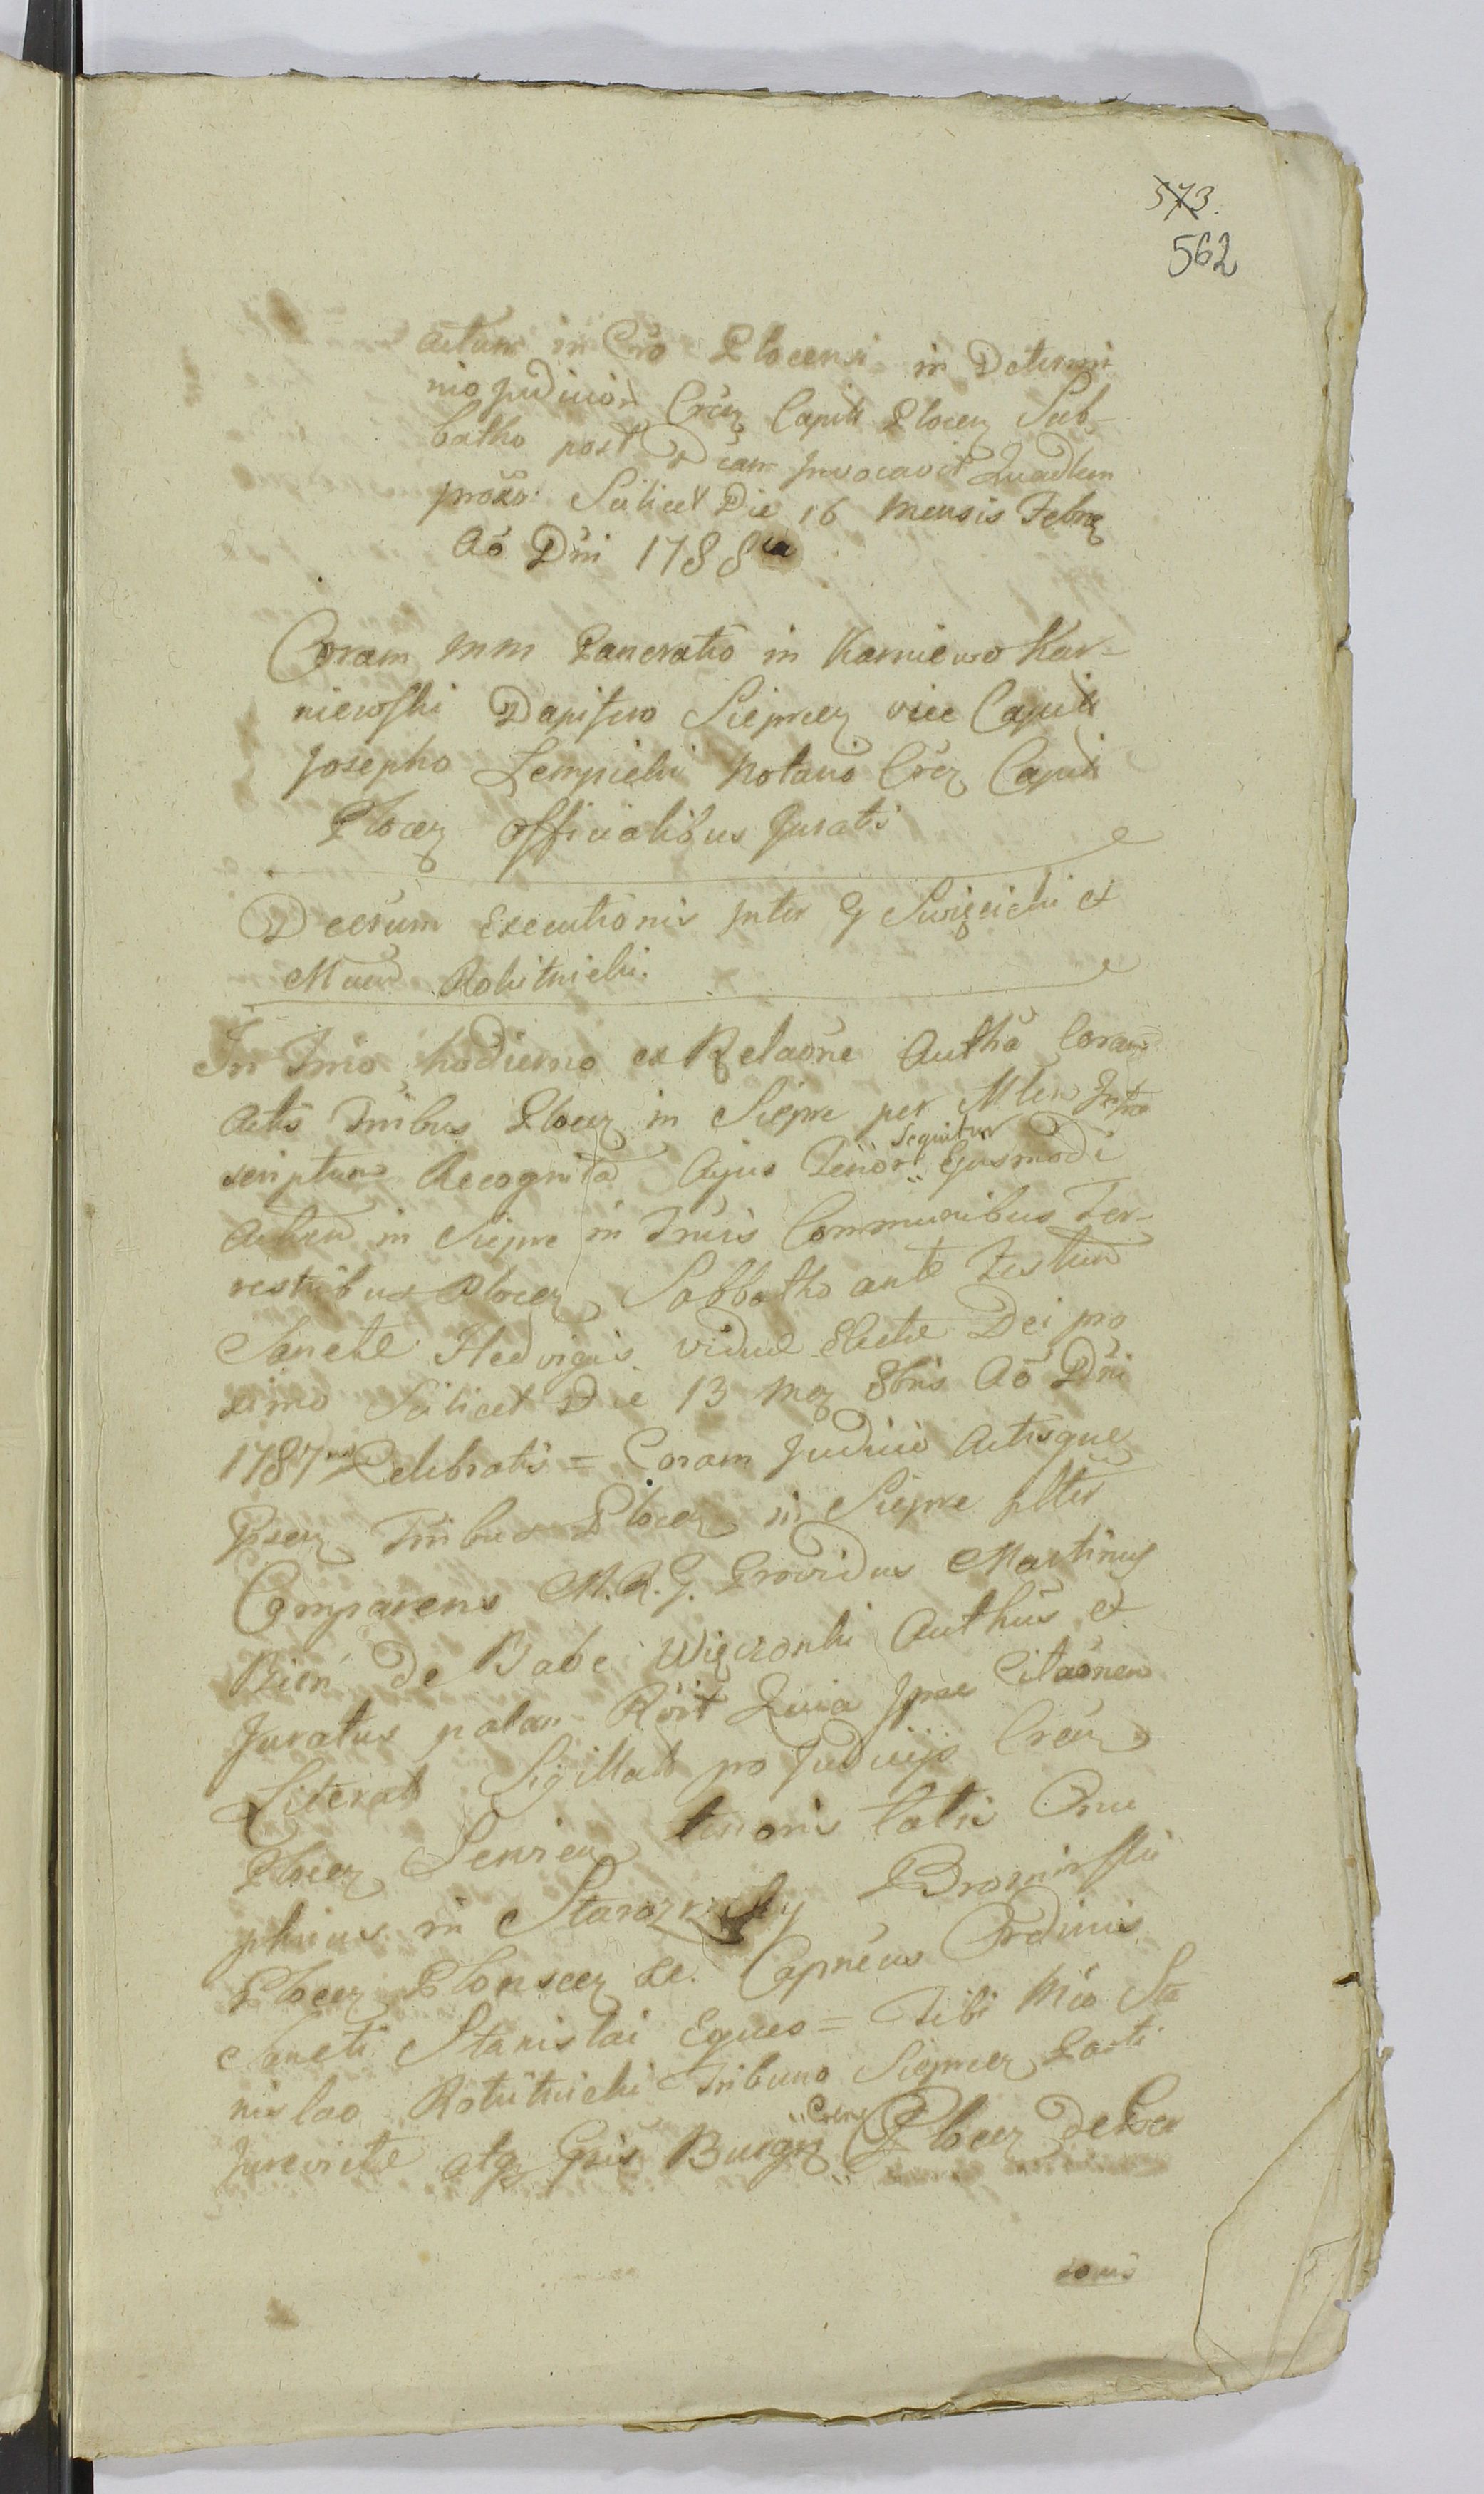 573.
562
Actum in Cro Plocensi in Determi
nio Judicior Crcz Capit Plocen Sab-
batho post Dcam Invocavit Quadlem
proxo: Scilicet Die 16 Mensis Febrz
Ao Dni 1788
Coram MM Pancratio in Karniewo Kar-
niewski Dapifero Sieprcen vice Capit
Josepho Lempicki Notario Crcz Capit
Plocen Officialibus Juratis
Decrum Executionis Inter G Swięcicki et
Mum Rokitnicki.
In Trno hodierno ex Relaone Autha Coram
Actis Tribus Plocen in Sieprc per Mlem Infra
scriptum Recognita Cujus Tenor Sequitur Ejusmodi
Actum in Sieprc in Trnis Communibus Ter-
restribus Plocen Sabbatho ante Festum
Sanctæ Hedvigis viduæ Electæ Dei pro
ximo Scilicet Die 13 Msz 8bris Ao Dni
1787mo Celebratis = Coram Judicio Actisque
Psen Tribus Plocen in Sieprc plter
Comparens M.R.G. Providus Martinus
Bień de Babe Więczonki Authus et
Juratus palam Rvit Quia Ipse Citaonem
Literat Sigillat pro Judicijs Crcen
Plocen tenoris talis Onu
phrius in Starozreby Bromirski
Plocen Plonscen Xe. Capneus Ordinis
Sancti Stanislai Eques = Tibi Mco Sta
nislao Rokitnicki Tribuno Sieprcen Parti
Jurevictæ atqz Gsis Burgrz Crens Plocen de Per
sonis